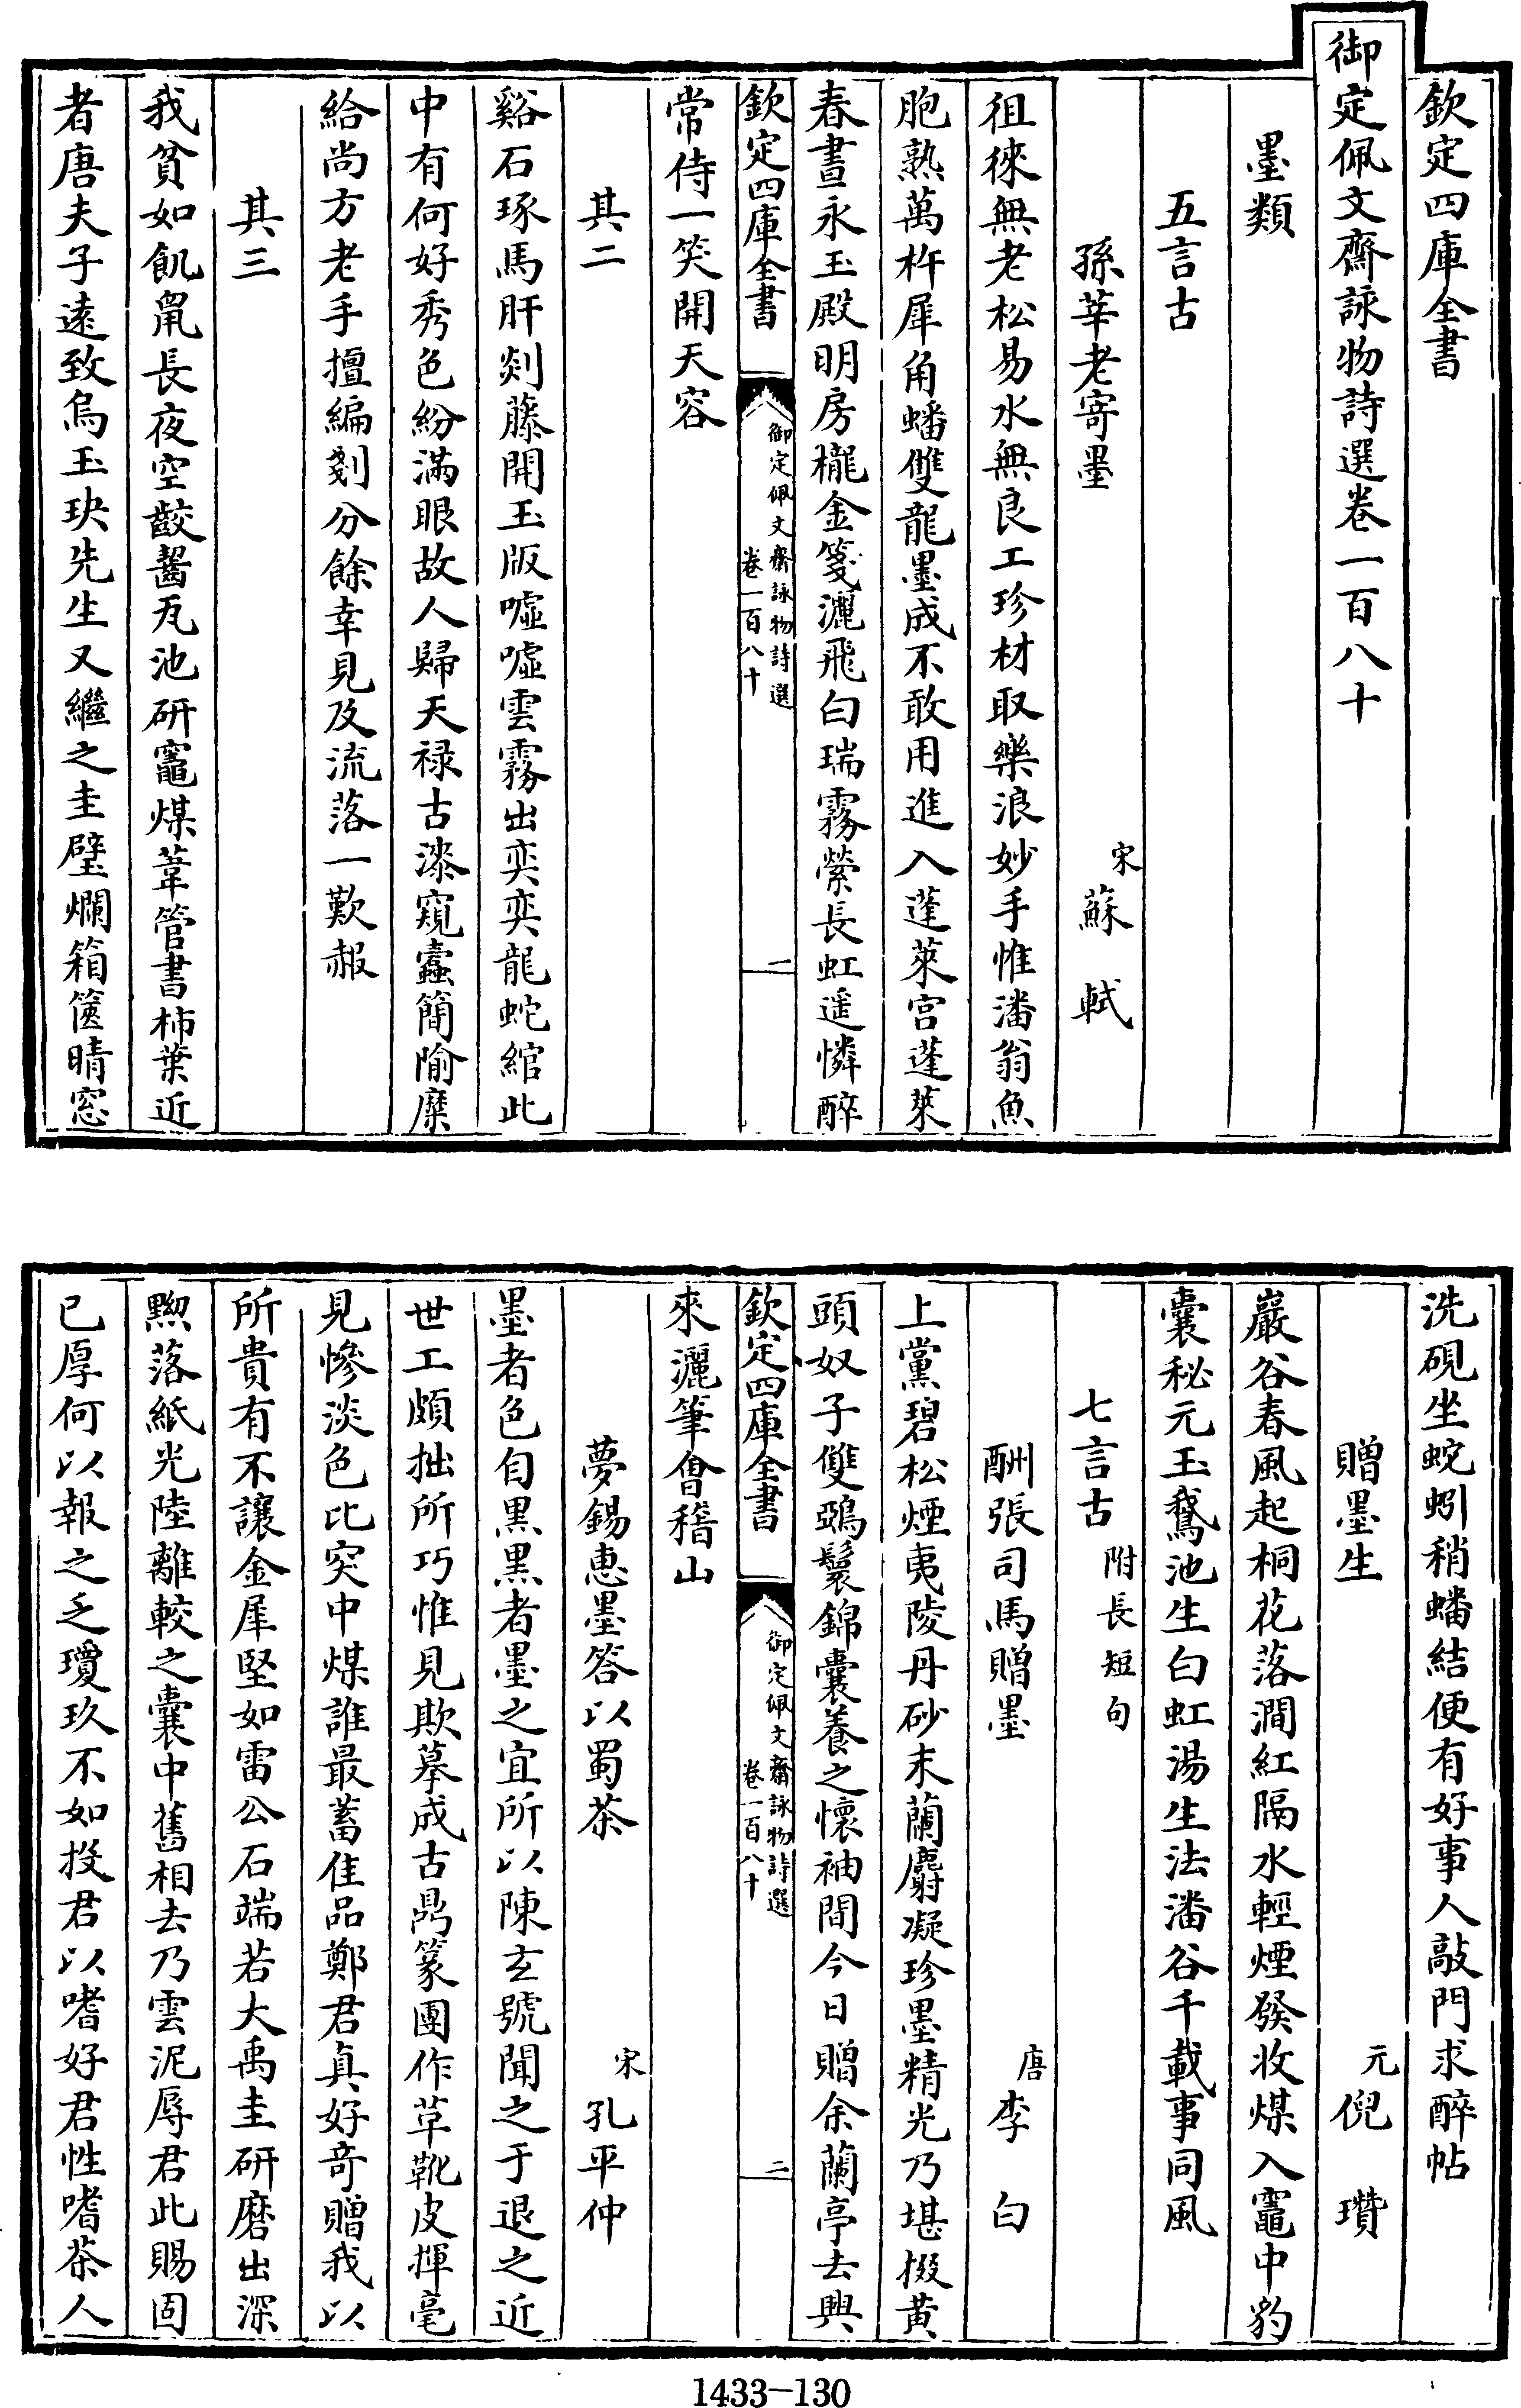 欽定四庫全書
御定佩文齋詠物詩選卷一百八十
墨類
五言古
孫莘老寄墨
宋蘇軾
徂徠無老松易水無良工珍材取樂浪妙手惟潘翁魚
胞熟萬杵犀角蟠雙龍墨成不敢用進入蓬萊宮蓬萊
春晝永玉殿明房櫳金箋灑飛白瑞霧縈長虹遥憐醉
欽定四庫全書
御定佩文齋詠物詩選
卷一百八十
一
常侍一笑開天容
其二
谿石琢馬肝剡藤開玉版噓噓雲霧出奕奕龍蛇綰此
中有何好秀色紛滿眼故人歸天禄古漆窺蠹簡隃糜
給尚方老手擅編剗分餘幸見及流落一歎赧
其三
我貧如飢鼠長夜空齩齧瓦池研竈煤葦管書柿葉近
者唐夫子遠致烏玉玦先生又繼之圭璧爛箱篋晴窓
洗硯坐蛇蚓稍蟠結便有好事人敲門求醉帖
贈墨生
元倪瓚
巖谷春風起桐花落澗紅隔水輕煙發收煤入竈中豹
囊秘元玉鵞池生白虹湯生法潘谷千載事同風
七言古附長短句
酬張司馬贈墨
唐李白
上黨碧松煙夷陵丹砂末蘭麝凝珍墨精光乃堪掇黄
頭奴子雙鵶鬟錦囊養之懷袖間今日贈余蘭亭去興
欽定四庫全書
御定佩文齋詠物詩選
卷一百八十
二
來灑筆會稽山
夢錫惠墨答以蜀茶
宋孔平仲
墨者色自黒黒者墨之宜所以陳玄號聞之于退之近
世工頗拙所巧惟見欺摹成古鼎篆團作革靴皮揮毫
見慘淡色比突中煤誰最蓄佳品鄭君真好奇贈我以
所貴有不讓金犀堅如雷公石端若大禹圭研磨出深
黝落紙光陸離較之囊中舊相去乃雲泥辱君此賜固
已厚何以報之乏瓊玖不如投君以嗜好君性嗜茶人
1433-130